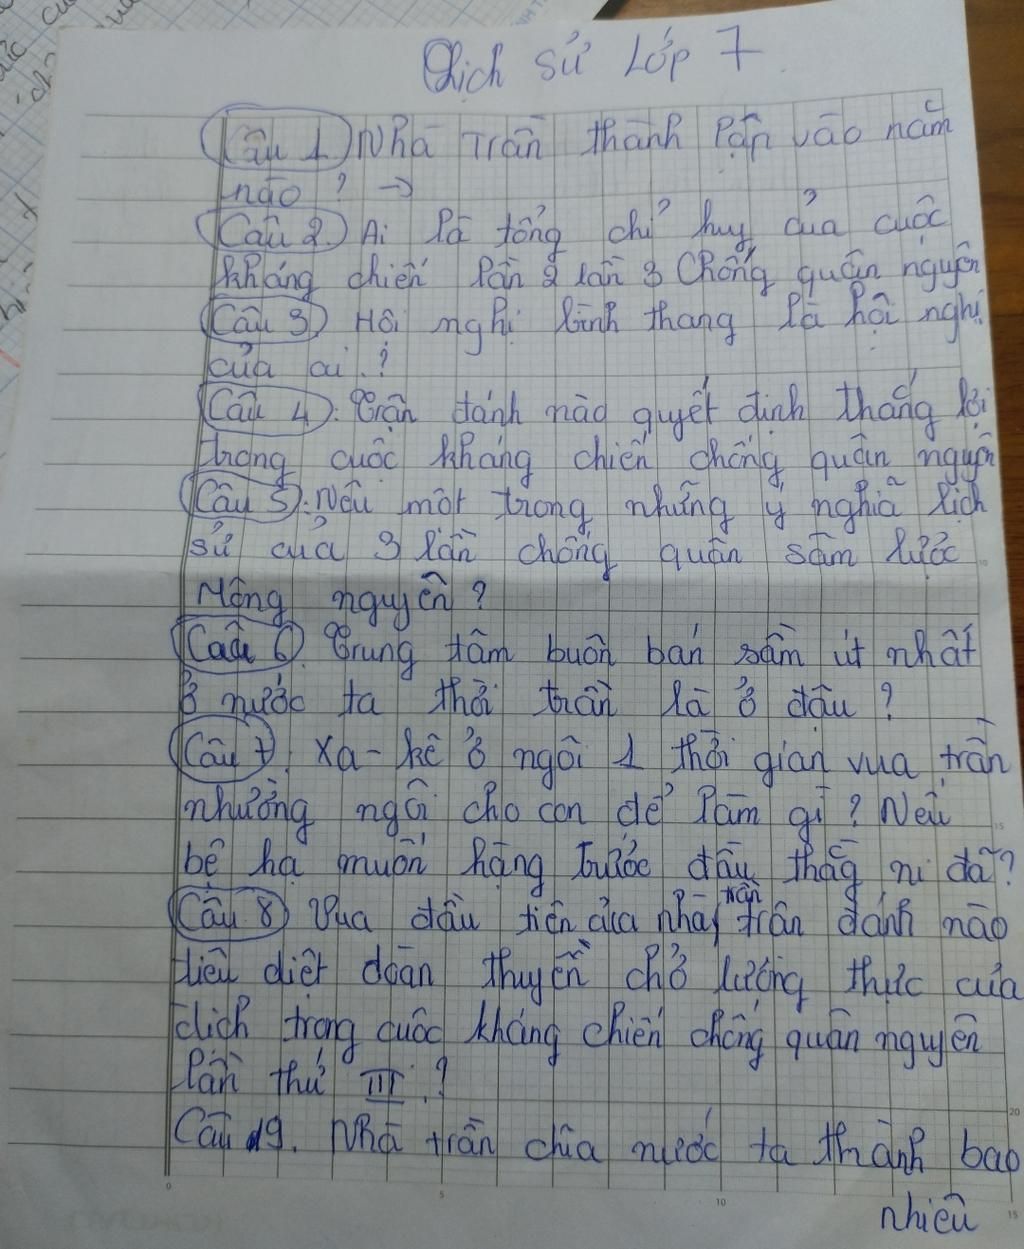 Lịch sử Lớp 7
Câu 1 Nhà Trần thành lập vào năm
nào ? →
Câu 2. Ai là tổng chỉ huy của cuộc
kháng chiến lần 2 lần 3 Chống quân nguyên
Câu 3 Hội nghị bình thang là hội nghị
của ai.?
Câu 4): Trận đánh nào quyết định thắng lợi
trong cuộc kháng chiến chống quân nguyên
Câu 5): Nêu một trong những ý nghĩa lịch
sử của 3 lần chống quân sâm lược
Mông nguyên ?
Câu 6 Trung tâm buôn bán sầm út nhất
ở nước ta thời trần là ở đâu ?
Câu 7. Xa-kê ở ngôi 1 thời gian vua trần
nhường ngôi cho con để làm gì ? Nếu
bệ hạ muốn hàng trước đầu thằg ni đã?
Câu 8 Vua đầu tiên của nhà trần trận đánh nào
tiêu diệt đoàn thuyền chở lương thực của
địch trong cuộc kháng chiến chống quân nguyên
lần thứ III ?
Câu 19. Nhà trần chia nước ta thành bao
nhiêu